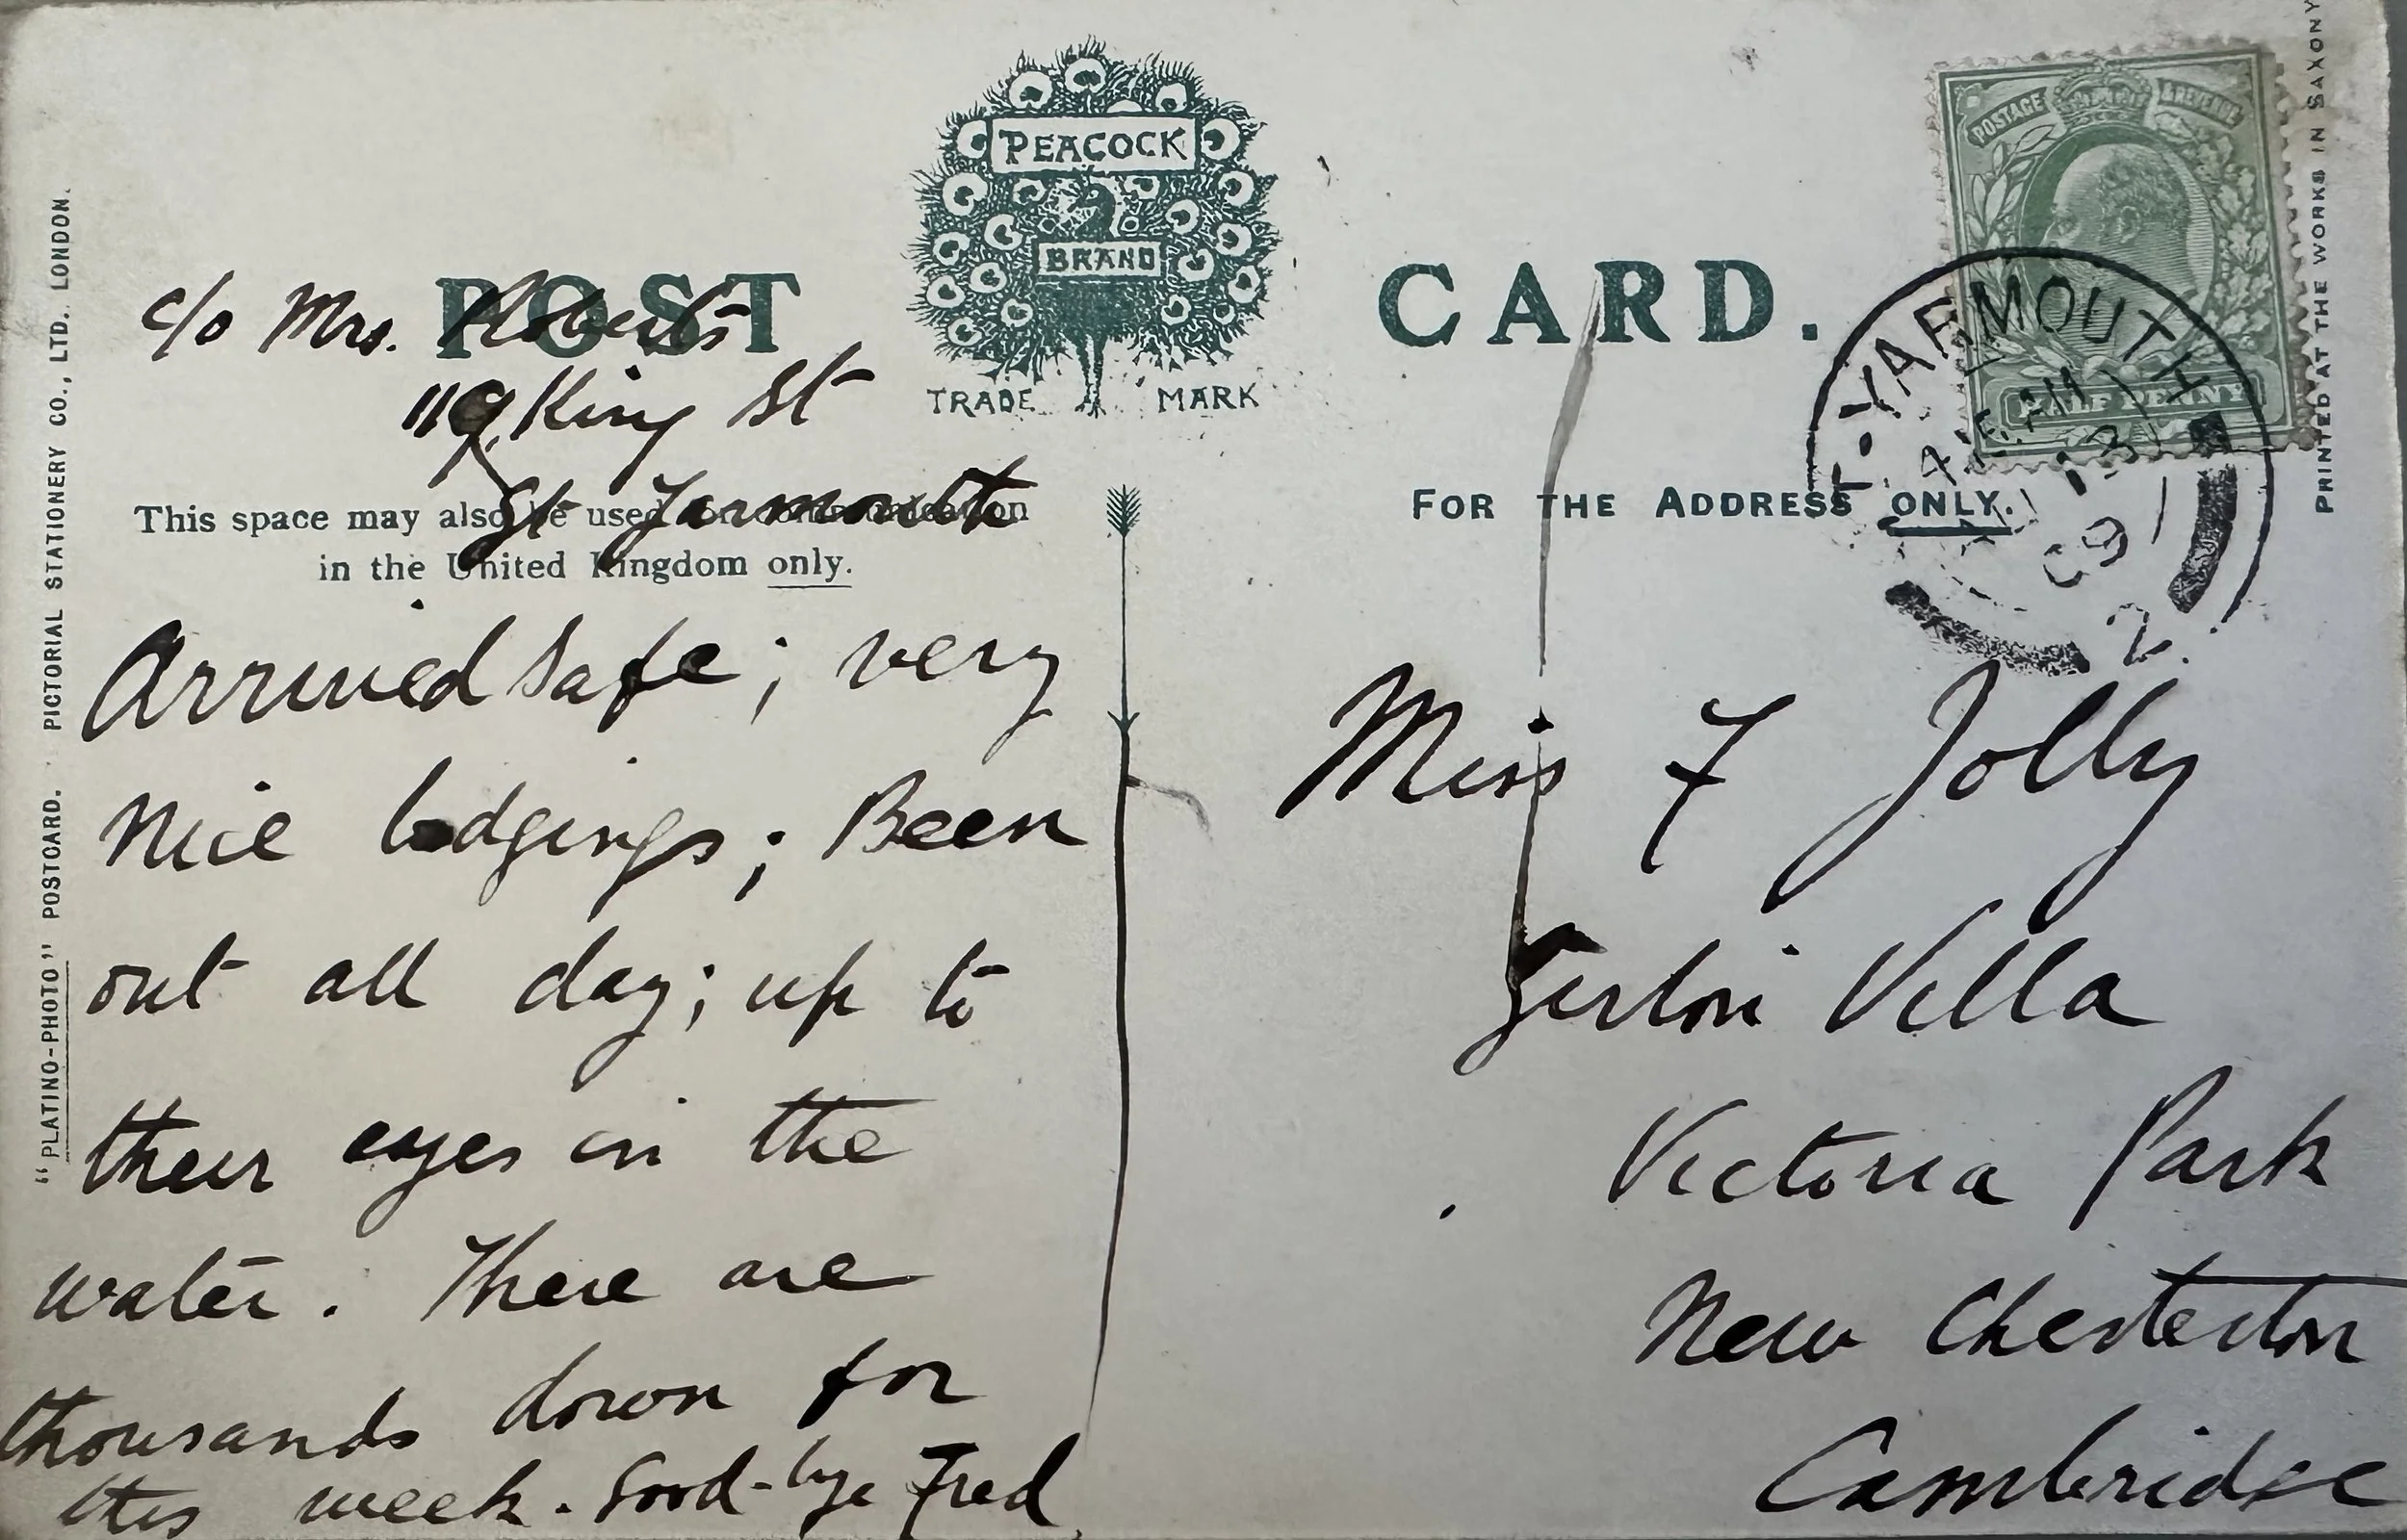 PEACOCK
BRAND
TRADE MARK
POST CARD.
c/o Mrs. Roberts
119 King St
Gt Yarmouth
This space may also be used for communication
in the United Kingdom only.
Arrived safe; very
nice lodgings; Been
out all day; up to
their eyes in the
water. There are
thousands down for
this week. Good-bye Fred
FOR THE ADDRESS ONLY.
Miss F Jolly
Girton Villa
Victoria Park
New Chesterton
Cambridge
POSTAGE & REVENUE
HALF PENNY
T-YARMOUTH
13
09
2
"PLATINO-PHOTO" POSTCARD. PICTORIAL STATIONERY CO., LTD., LONDON.
PRINTED AT THE WORKS IN SAXONY